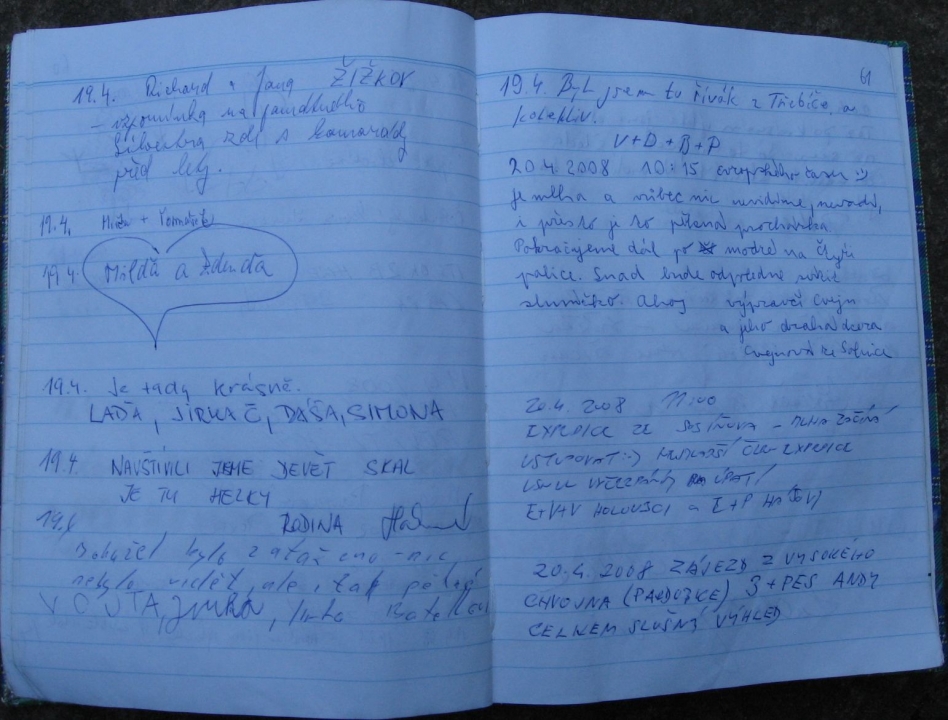 19.4. Richard a Jana ŽIŽKOV
- vzpomínka na památného
Silvestra zde s kamarády
před lety.
19.4. Míša +
19.4. Milďa a Zdenda
19.4. Je tady krásně.
LAĎA, JIRKA Č, DÁŠA, SIMONA
19.4. NAVŠTÍVILI JSME DEVĚT SKAL
JE TU HEZKY
RODINA
19.4
Bohužel bylo zataženo - nic
nebylo vidět, ale, tak pěkné
VOJTA, JIRKA,
61
19.4. Byl jsem tu Řivák z Třebíče a
kolektiv.
V+D+B+P
20.4.2008 10:15 evropského času :)
Je mlha a vůbec nic nevidíme, nevadí,
i přesto je to pěkná procházka.
Pokračujeme dál po modré na Čtyři
palice. Snad bude odpoledne
sluníčko. Ahoj výpravčí
a jeho drahá dcera
ze Solnice
20.4. 2008 11:00
EXPEDICE ZE - MLHA ZAČÍNÁ
USTUPOVAT :) NEJMLADŠÍ ČLEN EXPEDICE
USNUL VYČERPÁNÍM NA ÚPATÍ
E+V+V HOLOUBCI a E+P
20.4.2008 ZÁJEZD Z VYSOKÉHO
CHVOJNA (PARDUBICE) 3+PES ANDY
CELKEM SLUŠNÝ VÝHLED